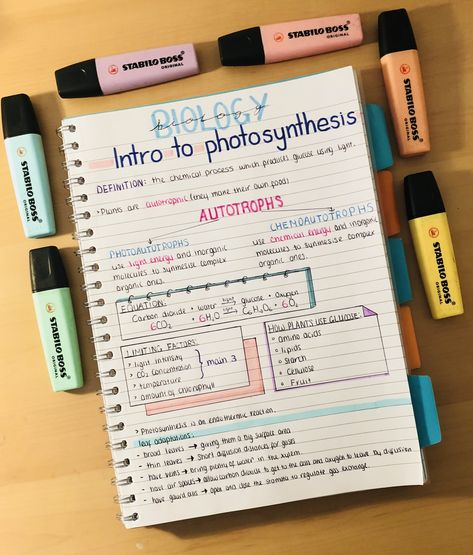 STABILO BOSS
ORIGINAL
STABILO BOSS
ORIGINAL
STABILO BOSS
ORIGINAL
STABILO BOSS
ORIGINAL
STABILO BOSS
ORIGINAL
STABILO BOSS
ORIGINAL
BIOLOGY
biology
Intro to photosynthesis
DEFINITION: the chemical process which produces glucose using light.
• Plants are autotrophic (they make their own food)
AUTOTROPHS
PHOTOAUTOTROPHS
use light energy and inorganic
molecules to synthesise complex
organic ones.
CHEMOAUTOTROPHS
use chemical energy and inorganic
molecules to synthesise complex
organic ones.
EQUATION:
Carbon dioxide + water light → glucose + Oxygen
6CO₂ 6H₂O light → C₆H₁₂O₆ 6O₂
LIMITING FACTORS:
› light intensity
› CO₂ concentration
› temperature
› amount of chlorophyll
main 3
HOW PLANTS USE GLUCOSE:
○ amino acids
○ lipids
○ Starch
○ Cellulose
○ Fruit
› Photosynthesis is an endothermic reaction.
leaf adaptations:
- broad leaves → giving them a big surface area
- thin leaves → Short diffusion distances for gases
- have veins → bring plenty of water in the xylem
- have air spaces → allow carbon dioxide to get to the and oxygen to leave by diffusion
- have guard cells → open and close the stomata to regulate gas exchange.